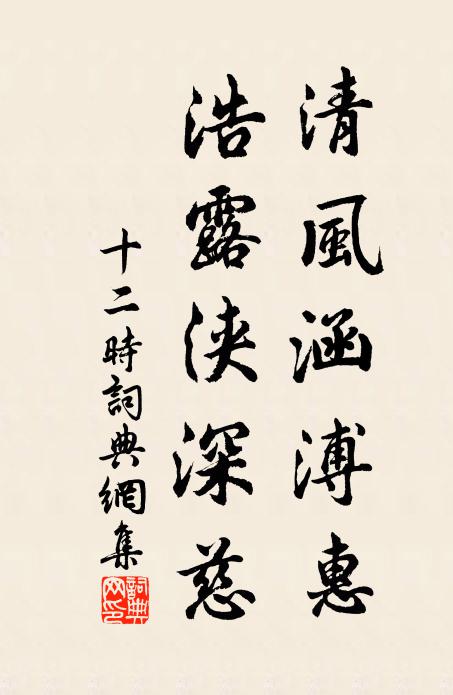 清風涵溥惠
浩露浹深慈
十二時詞典網集
詞典网印